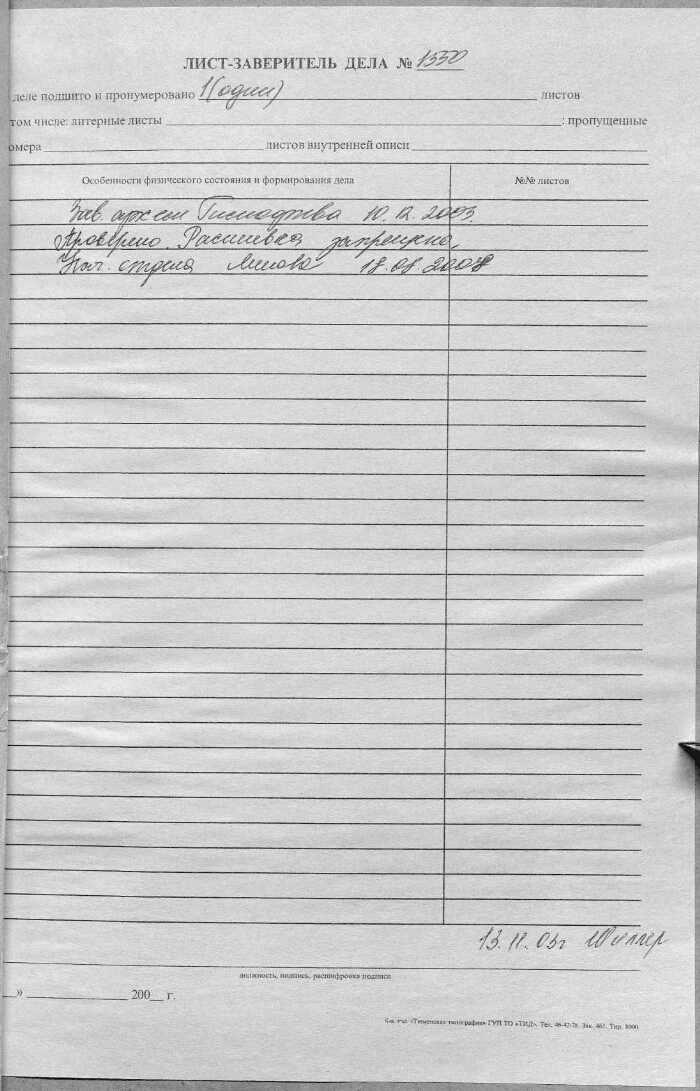 ЛИСТ-ЗАВЕРИТЕЛЬ ДЕЛА № 1550
деле подшито и пронумеровано 1 (один) листов
том числе: литерные листы ; пропущенные
омера листов внутренней описи
Особенности физического состояния и формирования дела №№ листов
Зав. архвом 10.12.2003.
Проверено. Расшивка запрещена.
Нач. отдела 18.08.2008
13.11.03г Шиллер
должность, подпись, расшифровка подписи
» 200 г.
«Тюменская типография» ГУП ТО «ТИД». Тел. 46-42-78. Зак. 461. Тир. 8000.